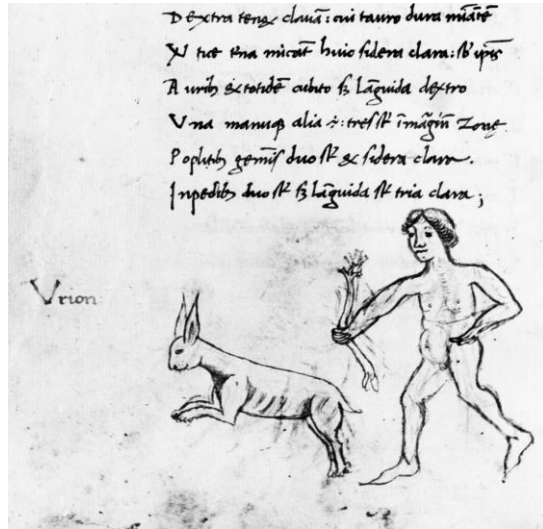 Dextra tenens clavā: cui tauro dura mināt~
tue t~na micāt huic sidera clara: sb ip~s
Aurib; & totidē cubito s; lāguida dextro
Una manuq; alia ÷: tres st īmāgīn zonę.
Poplitib; gemīs duo st & sidera clara.
Inpedib; duo st s; lāguida st tria clara;
Vrion